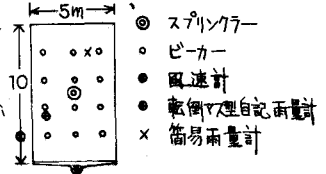 5m
10
スプリンクラー
ビーカー
風速計
転倒マス型自記雨量計
簡易雨量計